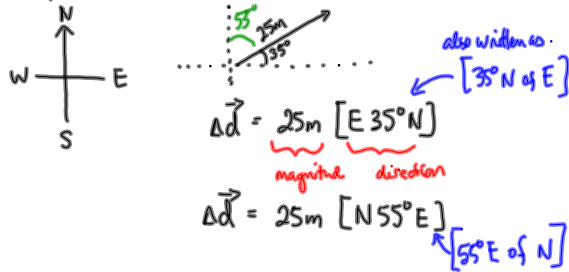 N
W E
S
55°
25m
35°
also written as.
[35° N of E]
Δd = 25m [E 35° N]
magnitud direction
Δd = 25m [N 55° E]
[55° E of N]